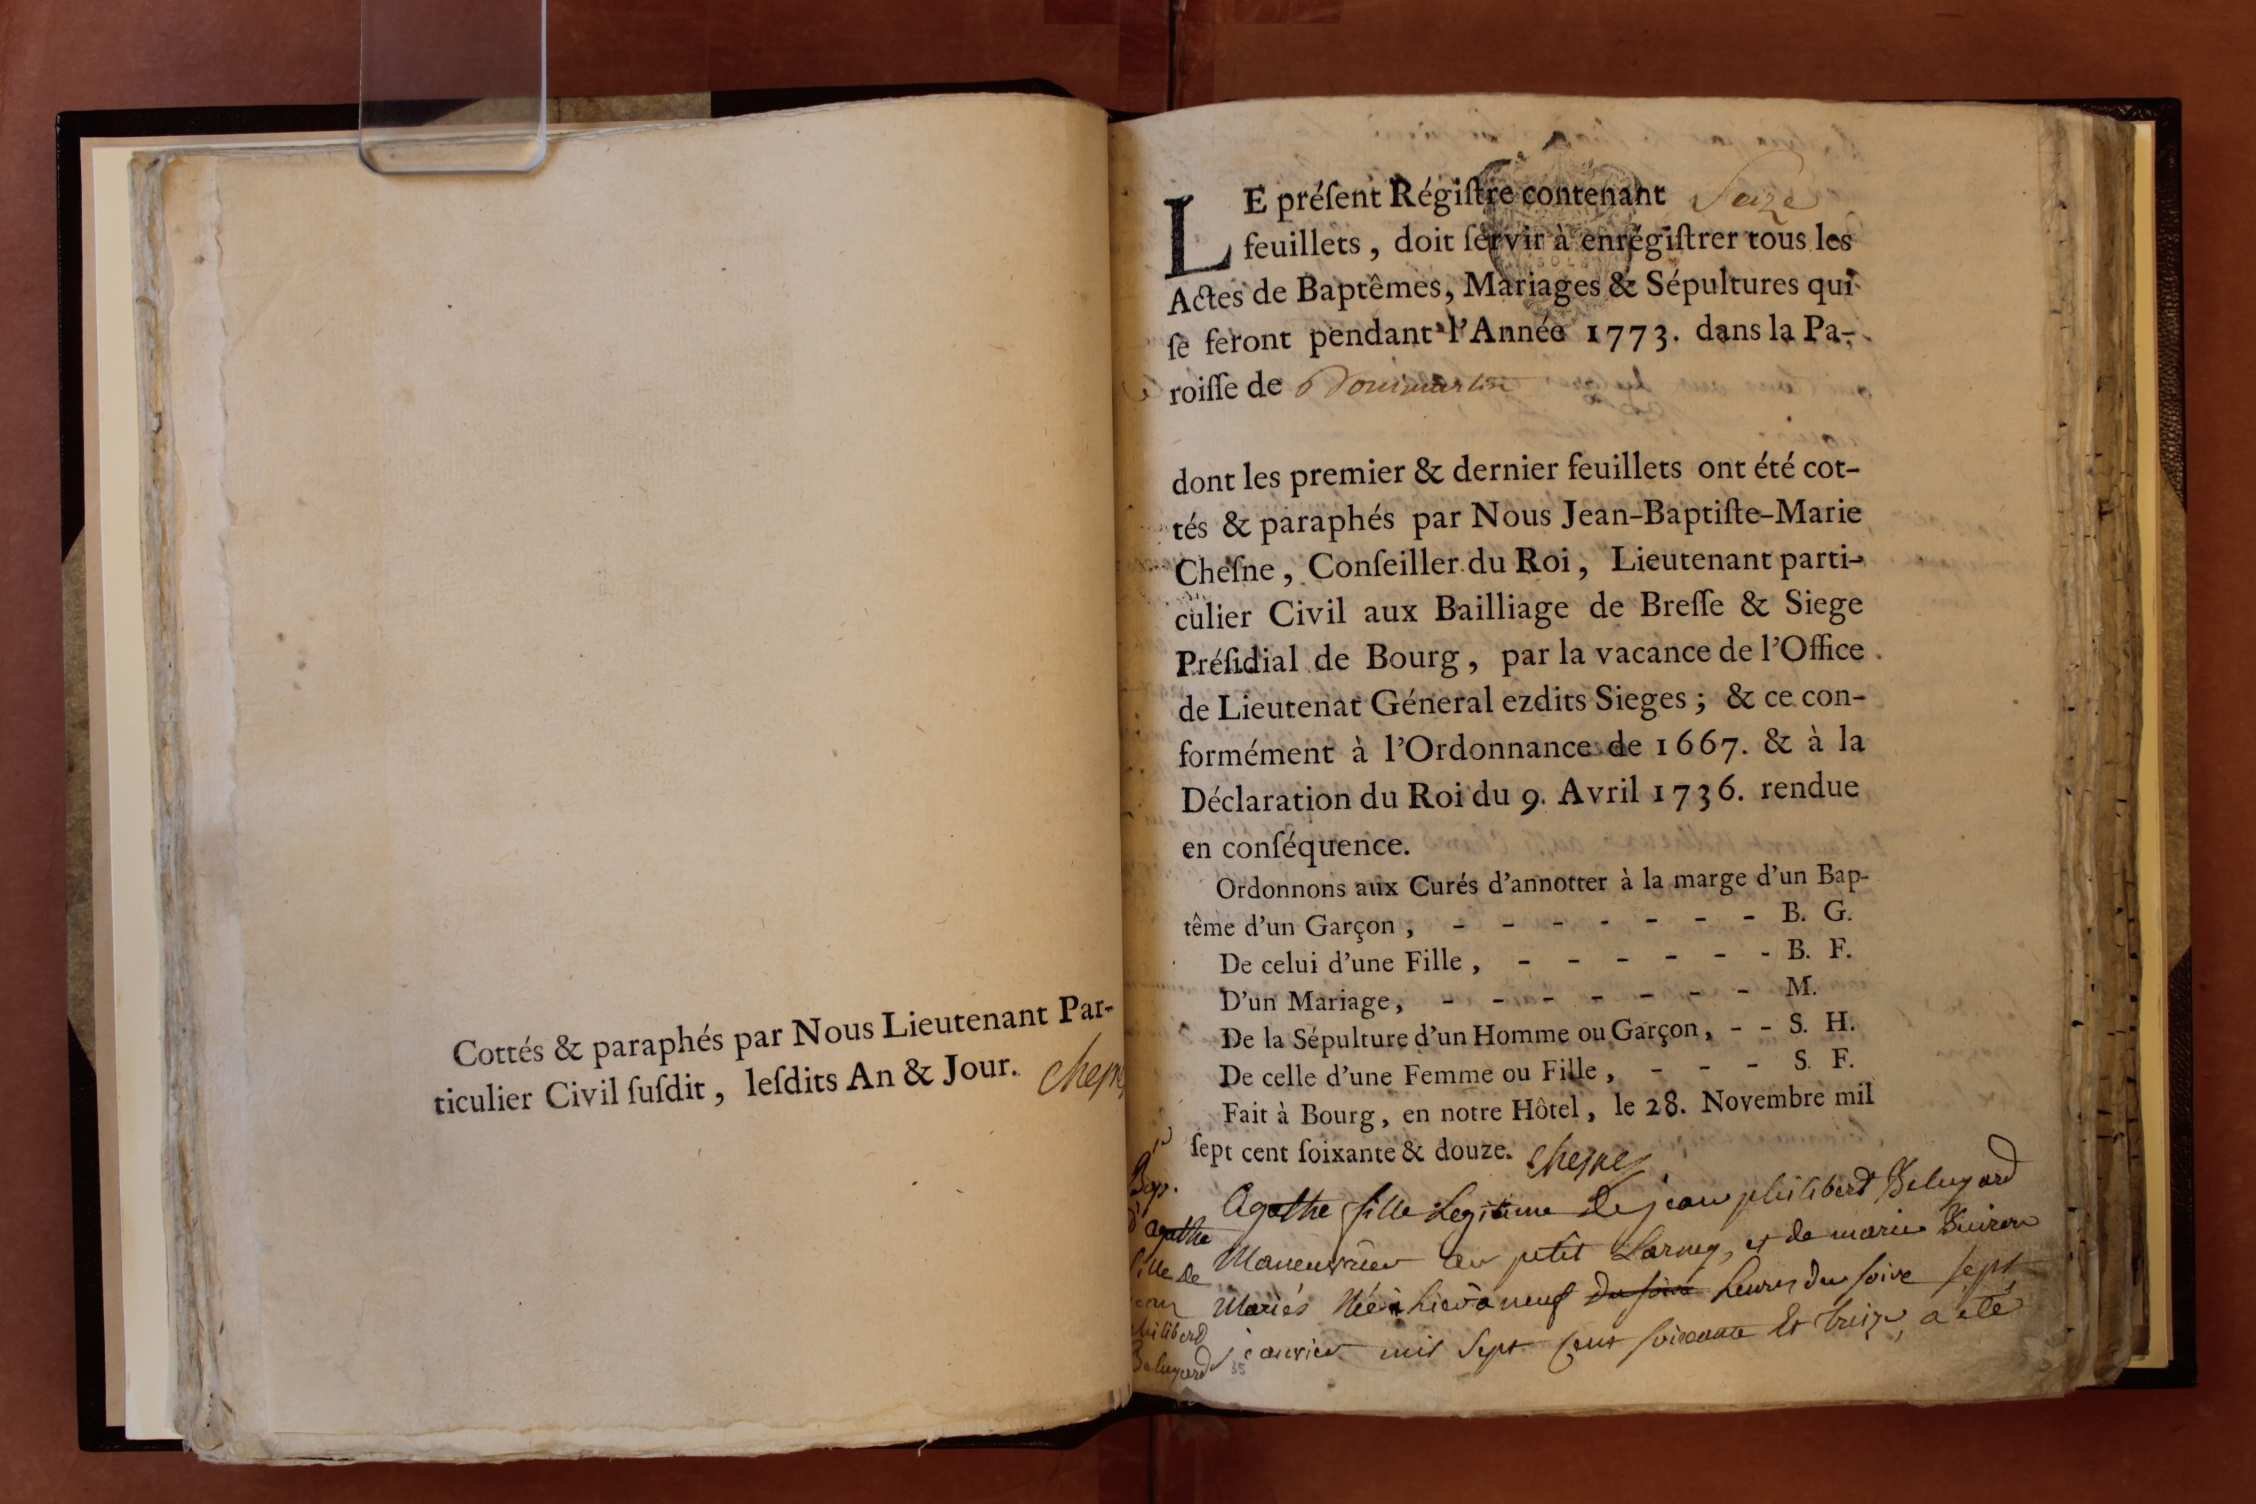 Cottés & paraphés par Nous Lieutenant Par-
ticulier Civil ſuſdit, leſdits An & Jour. Cheſne
LE préſent Régiſtre contenant Seize
feuillets, doit ſervir à enrégiſtrer tous les
Actes de Baptêmes, Mariages & Sépultures qui
ſe feront pendant l'Année 1773. dans la Pa-
roiſſe de Domimartin
dont les premier & dernier feuillets ont été cot-
tés & paraphés par Nous Jean-Baptiſte-Marie
Cheſne, Conſeiller du Roi, Lieutenant parti-
culier Civil aux Bailliage de Breſſe & Siege
Préſidial de Bourg, par la vacance de l'Office
de Lieutenat Géneral ezdits Sieges; & ce con-
formément à l'Ordonnance de 1667. & à la
Déclaration du Roi du 9. Avril 1736. rendue
en conſéquence.
Ordonnons aux Curés d'annotter à la marge d'un Bap-
tême d'un Garçon, - - - - - - - B. G.
De celui d'une Fille, - - - - - - B. F.
D'un Mariage, - - - - - - - M.
De la Sépulture d'un Homme ou Garçon, - - S. H.
De celle d'une Femme ou Fille, - - - S. F.
Fait à Bourg, en notre Hôtel, le 28. Novembre mil
ſept cent ſoixante & douze. Cheſne
Bap.
d'agathe
fille de
jean
philiberd
Beluyard
Agathe fille Legitime De jean philiberd Beluyard
Maneuvrier au petit Larnay, et de marie
Mariés Née hier à neuf du soire heures du soire sept
janvier mil Sept Cent soixante Et treize, a été
35